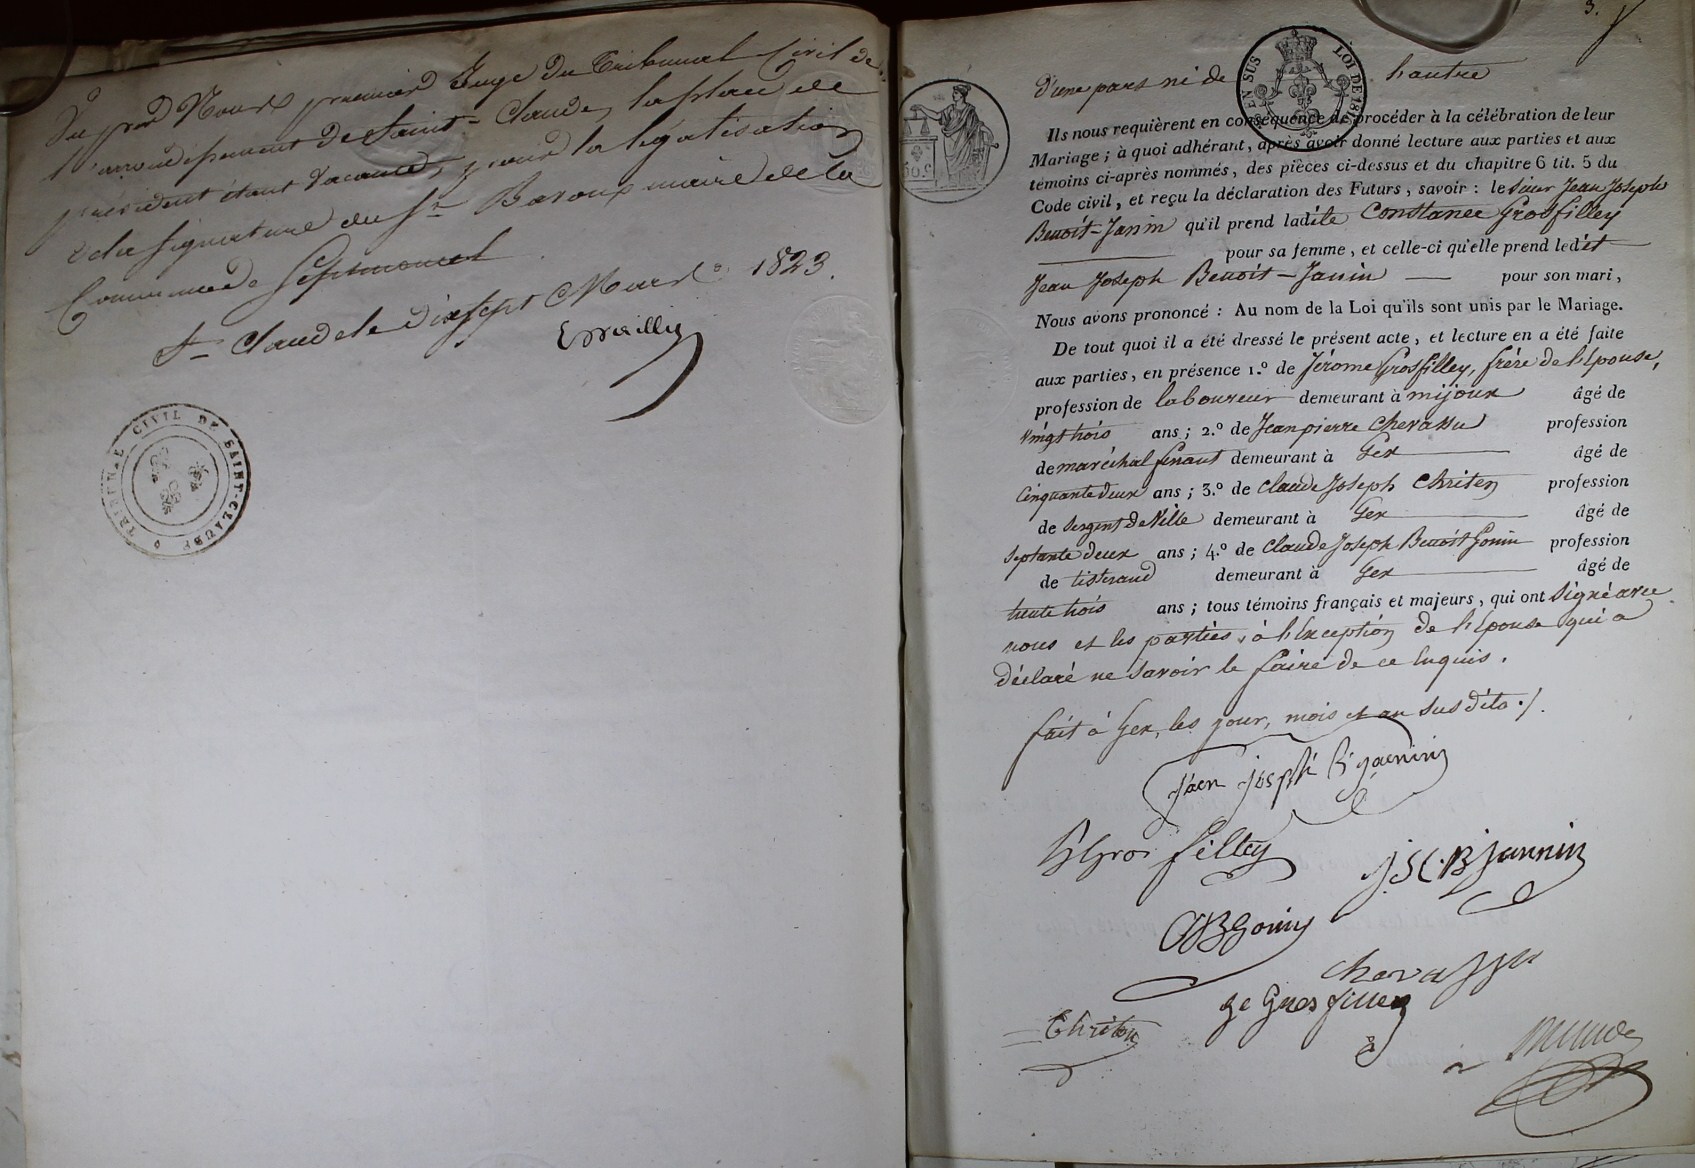 Vu par Nous premier Juge du Tribunal Civil de
l'arrondissement de Saint-Claude, la place de
président étant vacante, pour la légalisation
de la signature du Sr Baroux maire de la
Commune de Septmoncel
St Claude le dix sept Mars 1823.
TRIBUNAL CIVIL DE SAINT-CLAUDE
3.
d'une part ni de l'autre
EN SUS
LOI DE 181
Ils nous requièrent en conséquence de procéder à la célébration de leur
Mariage ; à quoi adhérant, après avoir donné lecture aux parties et aux
témoins ci-après nommés, des pièces ci-dessus et du chapitre 6 tit. 5 du
Code civil, et reçu la déclaration des Futurs, savoir : le sieur Jean Joseph
Benoit-Janin qu'il prend ladite Constance Grosfilley
pour sa femme, et celle-ci qu'elle prend ledit
Jean Joseph Benoit-Janin pour son mari,
Nous avons prononcé : Au nom de la Loi qu'ils sont unis par le Mariage.
De tout quoi il a été dressé le présent acte, et lecture en a été faite
aux parties, en présence 1.º de Jérome Grosfilley, frère de l'Epouse,
profession de laboureur demeurant à mijoux âgé de
vingt trois ans ; 2.º de Jean pierre Chevassu profession
de maréchal ferrant demeurant à Gex âgé de
Cinquante deux ans ; 3.º de Claude Joseph Chriten profession
de Sergent de Ville demeurant à Gex âgé de
Septante deux ans ; 4.º de Claude Joseph Benoit Gonin profession
de tisserand demeurant à Gex âgé de
trente trois ans ; tous témoins français et majeurs, qui ont Signé avec
nous et les parties, à l'Exception de l'Epouse qui a
déclaré ne Savoir le faire de ce Enquis.
fait à Gex, les jour, mois et an Sus dits ./.
Jaen Joseph B janin
Gros filley
J S C B Jannin
CJB Gonin
Chevassu
ge Gros filley
Chriten